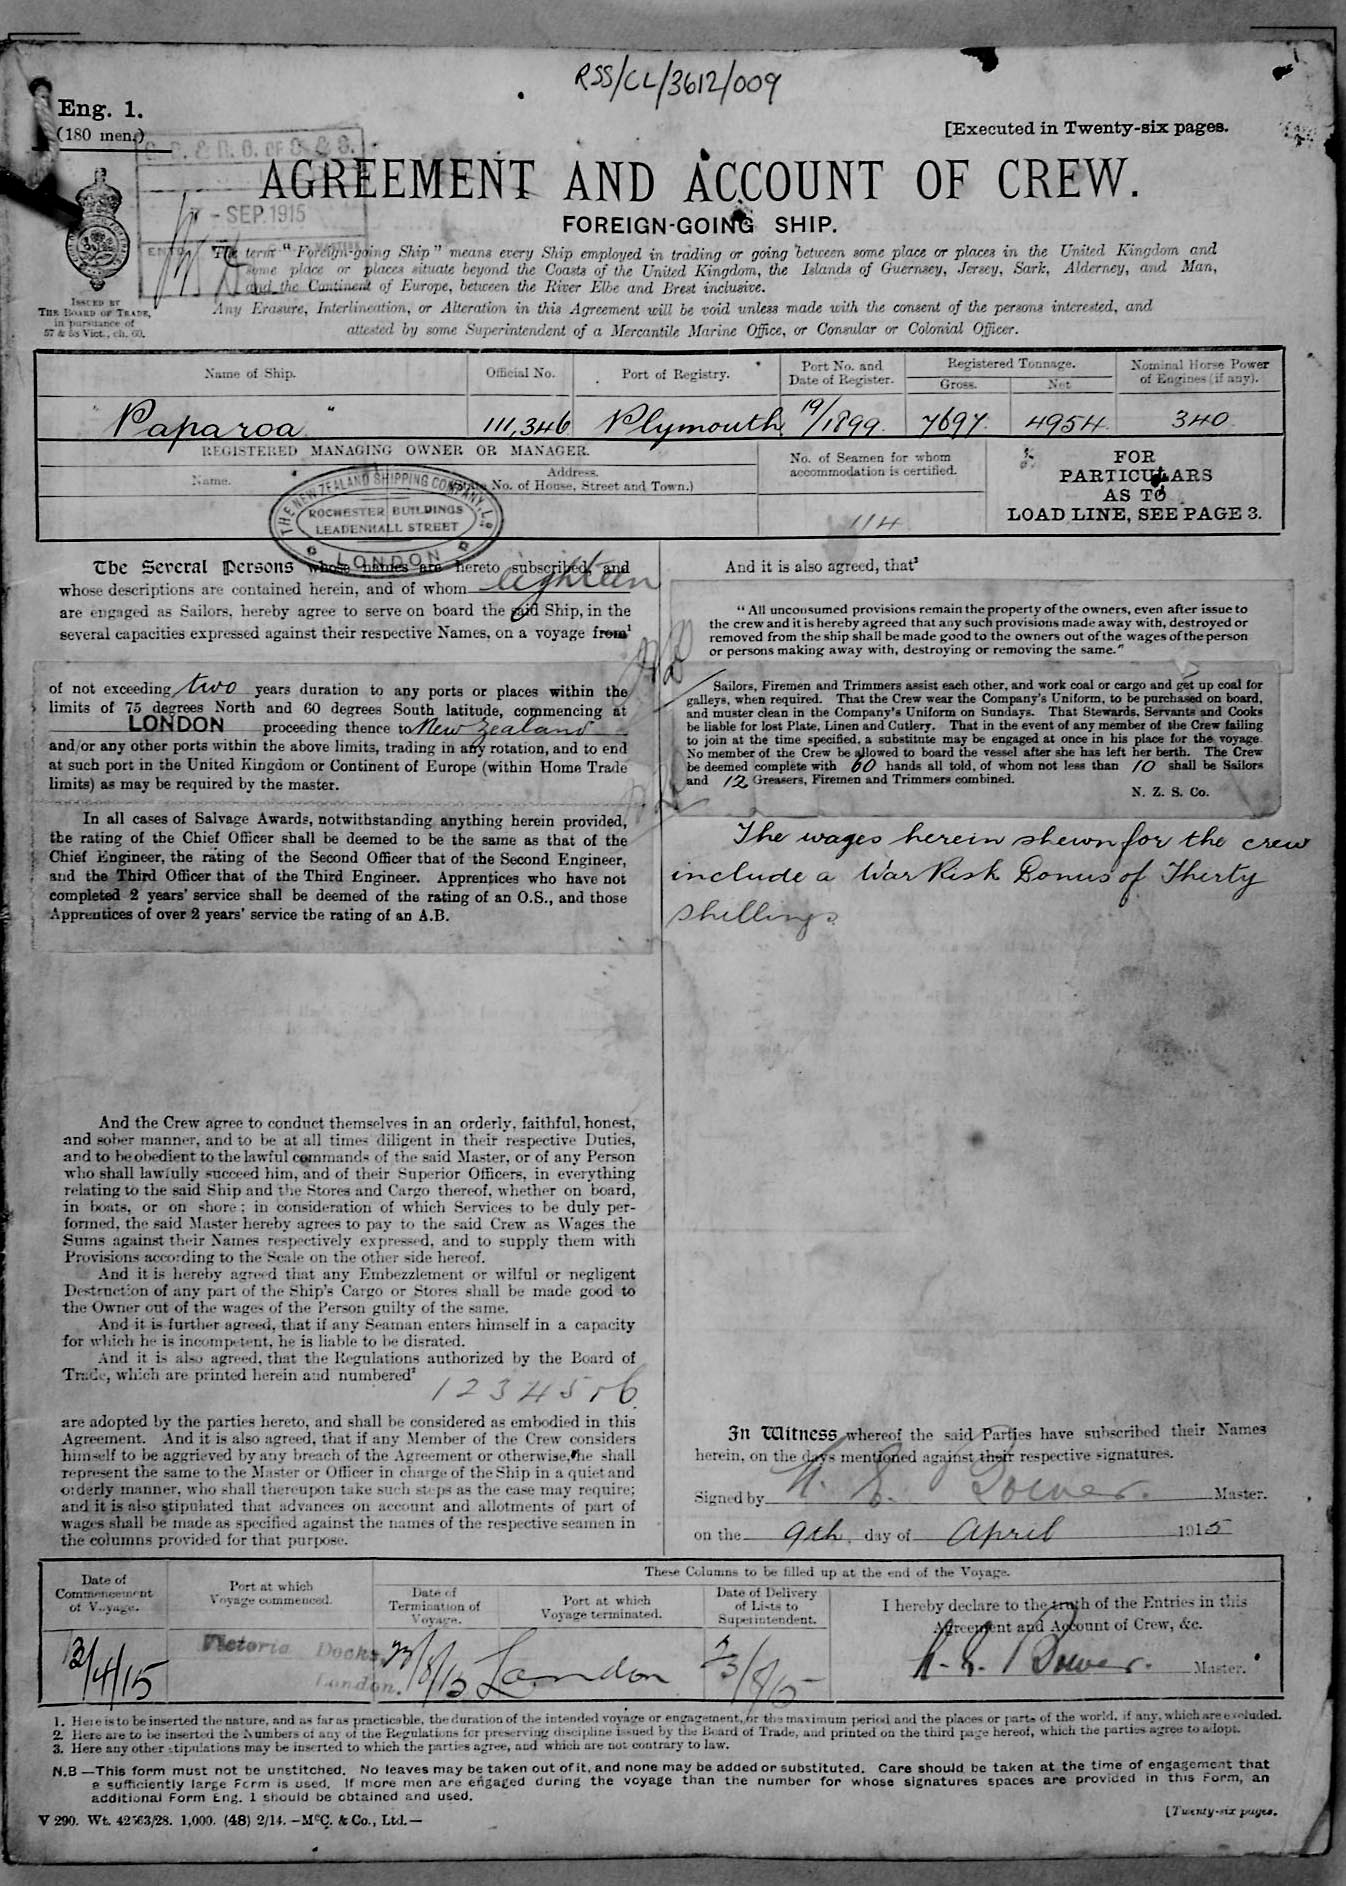 RSS/CL/3612/009
Eng. 1.
(180 men.)
[Executed in Twenty-six pages.
- SEP. 1915
AGREEMENT AND ACCOUNT OF CREW.
FOREIGN-GOING SHIP.
The term "Foreign-going Ship" means every Ship employed in trading or going between some place or places in the United Kingdom and
some place or places situate beyond the Coasts of the United Kingdom, the Islands of Guernsey, Jersey, Sark, Alderney, and Man,
and the Continent of Europe, between the River Elbe and Brest inclusive.
Any Erasure, Interlineation, or Alteration in this Agreement will be void unless made with the consent of the persons interested, and
attested by some Superintendent of a Mercantile Marine Office, or Consular or Colonial Officer.
ISSUED BY
THE BOARD OF TRADE,
in pursuance of
57 & 58 Vict., ch. 60.
Name of Ship. Official No. Port of Registry. Port No. and Date of Register. Registered Tonnage. Gross. Net Nominal Horse Power of Engines (if any).
"Paparoa" 111,346 Plymouth 19/1899. 7697. 4954. 340.
REGISTERED MANAGING OWNER OR MANAGER.
Name. Address. (State No. of House, Street and Town.)
No. of Seamen for whom
accommodation is certified.
114
FOR
PARTICULARS
AS TO
LOAD LINE, SEE PAGE 3.
THE NEW ZEALAND SHIPPING COMPANY, Ld
ROCHESTER BUILDINGS
LEADENHALL STREET
LONDON
The Several Persons whose names are hereto subscribed, and
whose descriptions are contained herein, and of whom eighteen
are engaged as Sailors, hereby agree to serve on board the said Ship, in the
several capacities expressed against their respective Names, on a voyage from¹
of not exceeding two years duration to any ports or places within the
limits of 75 degrees North and 60 degrees South latitude, commencing at
LONDON proceeding thence to New Zealand
and/or any other ports within the above limits, trading in any rotation, and to end
at such port in the United Kingdom or Continent of Europe (within Home Trade
limits) as may be required by the master.
In all cases of Salvage Awards, notwithstanding anything herein provided,
the rating of the Chief Officer shall be deemed to be the same as that of the
Chief Engineer, the rating of the Second Officer that of the Second Engineer,
and the Third Officer that of the Third Engineer. Apprentices who have not
completed 2 years' service shall be deemed of the rating of an O.S., and those
Apprentices of over 2 years' service the rating of an A.B.
And the Crew agree to conduct themselves in an orderly, faithful, honest,
and sober manner, and to be at all times diligent in their respective Duties,
and to be obedient to the lawful commands of the said Master, or of any Person
who shall lawfully succeed him, and of their Superior Officers, in everything
relating to the said Ship and the Stores and Cargo thereof, whether on board,
in boats, or on shore; in consideration of which Services to be duly per-
formed, the said Master hereby agrees to pay to the said Crew as Wages the
Sums against their Names respectively expressed, and to supply them with
Provisions according to the Scale on the other side hereof.
And it is hereby agreed that any Embezzlement or wilful or negligent
Destruction of any part of the Ship's Cargo or Stores shall be made good to
the Owner out of the wages of the Person guilty of the same.
And it is further agreed, that if any Seaman enters himself in a capacity
for which he is incompetent, he is liable to be disrated.
And it is also agreed, that the Regulations authorized by the Board of
Trade, which are printed herein and numbered²
1 2 3 4 5 & 6
are adopted by the parties hereto, and shall be considered as embodied in this
Agreement. And it is also agreed, that if any Member of the Crew considers
himself to be aggrieved by any breach of the Agreement or otherwise, he shall
represent the same to the Master or Officer in charge of the Ship in a quiet and
orderly manner, who shall thereupon take such steps as the case may require;
and it is also stipulated that advances on account and allotments of part of
wages shall be made as specified against the names of the respective seamen in
the columns provided for that purpose.
And it is also agreed, that³
"All unconsumed provisions remain the property of the owners, even after issue to
the crew and it is hereby agreed that any such provisions made away with, destroyed or
removed from the ship shall be made good to the owners out of the wages of the person
or persons making away with, destroying or removing the same."
Sailors, Firemen and Trimmers assist each other, and work coal or cargo and get up coal for
galleys, when required. That the Crew wear the Company's Uniform, to be purchased on board,
and muster clean in the Company's Uniform on Sundays. That Stewards, Servants and Cooks
be liable for lost Plate, Linen and Cutlery. That in the event of any member of the Crew failing
to join at the time specified, a substitute may be engaged at once in his place for the voyage.
No member of the Crew be allowed to board the vessel after she has left her berth. The Crew
be deemed complete with 60 hands all told, of whom not less than 10 shall be Sailors
and 12 Greasers, Firemen and Trimmers combined.
N. Z. S. Co.
The wages herein shewn for the crew
include a War Risk Bonus of Thirty
shillings
In Witness whereof the said Parties have subscribed their Names
herein, on the days mentioned against their respective signatures.
Signed by Bower. Master.
on the 9th. day of April 1915
Date of Commencement of Voyage. Port at which Voyage commenced. These Columns to be filled up at the end of the Voyage.
Date of Termination of Voyage. Port at which Voyage terminated. Date of Delivery of Lists to Superintendent.
I hereby declare to the truth of the Entries in this
Agreement and Account of Crew, &c.
/4/15 Victoria Docks London. London Bower. Master.
1. Here is to be inserted the nature, and as far as practicable, the duration of the intended voyage or engagement, or the maximum period and the places or parts of the world, if any, which are excluded.
2. Here are to be inserted the Numbers of any of the Regulations for preserving discipline issued by the Board of Trade, and printed on the third page hereof, which the parties agree to adopt.
3. Here any other stipulations may be inserted to which the parties agree, and which are not contrary to law.
N.B —This form must not be unstitched. No leaves may be taken out of it, and none may be added or substituted. Care should be taken at the time of engagement that
a sufficiently large Form is used. If more men are engaged during the voyage than the number for whose signatures spaces are provided in this Form, an
additional Form Eng. 1 should be obtained and used.
V 290. Wt. 42563/28. 1,000. (48) 2/14. —McC. & Co., Ltd.—
[Twenty-six pages.